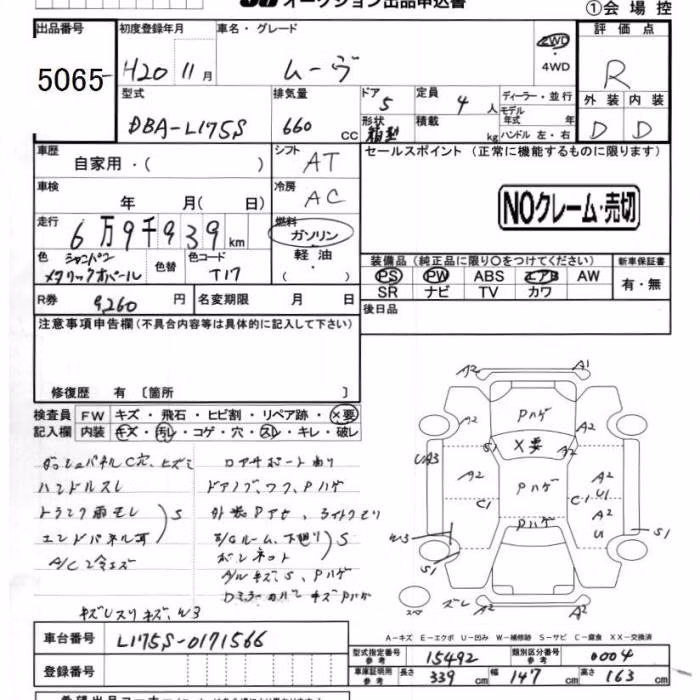 オークション出品申込書
①会場控
出品番号
5065
初度登録年月
H20 11月
車名・グレード
ムーヴ
2WD
・
4WD
評価点
R
外装 内装
D D
型式
DBA-L175S
排気量
660 cc
ドア
5
定員
4 人
形状
箱型
積載
kg
ディーラー・並行
モデル
年式 年
ハンドル 左・右
車歴
自家用・( )
シフト
AT
セールスポイント (正常に機能するものに限ります)
NOクレーム・売切
車検
年 月( 日)
冷房
AC
走行
6万9千939km
燃料
ガソリン
軽油
・( )
色
シャンパン
メタリックオパール
色替
色コード
T17
装備品 (純正品に限り○をつけてください)
PS PW ABS エアB AW
SR ナビ TV カワ
新車保証書
有・無
R券
9,260 円
名変期限 月 日
後日品
注意事項申告欄(不具合内容等は具体的に記入して下さい)
修復歴 有 〔箇所 〕
検査員
記入欄
FW キズ・飛石・ヒビ割・リペア跡・×要
内装 キズ・汚レ・コゲ・穴・スレ・キレ・破レ
ダッシュパネルC穴、ヒズミ
ハンドルスレ
トランク雨モレ
エンドパネル
S
ロアサポート曲り
ドアノブ、ワク、Pハゲ
外装Pアセ、ライトクモリ
E/Gルーム、下廻り
ボンネット
S
A/Wキズ、S、Pハゲ
DミラーカバーキズPハゲ
A2 A1
Pハゲ
A2 A2
S1 ×要 A2
UA3
A2 Pハゲ A2
U1
C1 C1
A2
Pハゲ U
W3 S1
S1 A2 A2
ズレ A2
A-キズ E-エクボ U-凹み W-補修跡 S-サビ C-腐食 XX-交換済
車台番号
L175S-0171566
登録番号
型式指定番号
参考
15492
類別区分番号
参考
0004
車庫証明用
参考
長さ 339 cm 幅 147 cm 高さ 163 cm